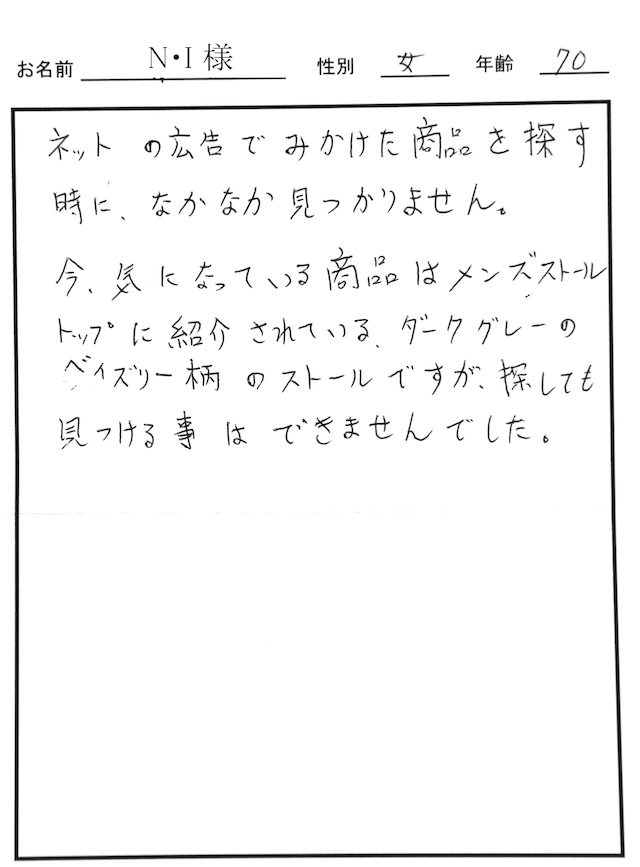 お名前 N・I 様 性別 女 年齢 70
ネットの広告でみかけた商品を探す
時に、なかなか見つかりません。
今、気になっている商品はメンズストール
トップに紹介されている、ダークグレーの
ペイズリー柄のストールですが、探しても
見つける事はできませんでした。